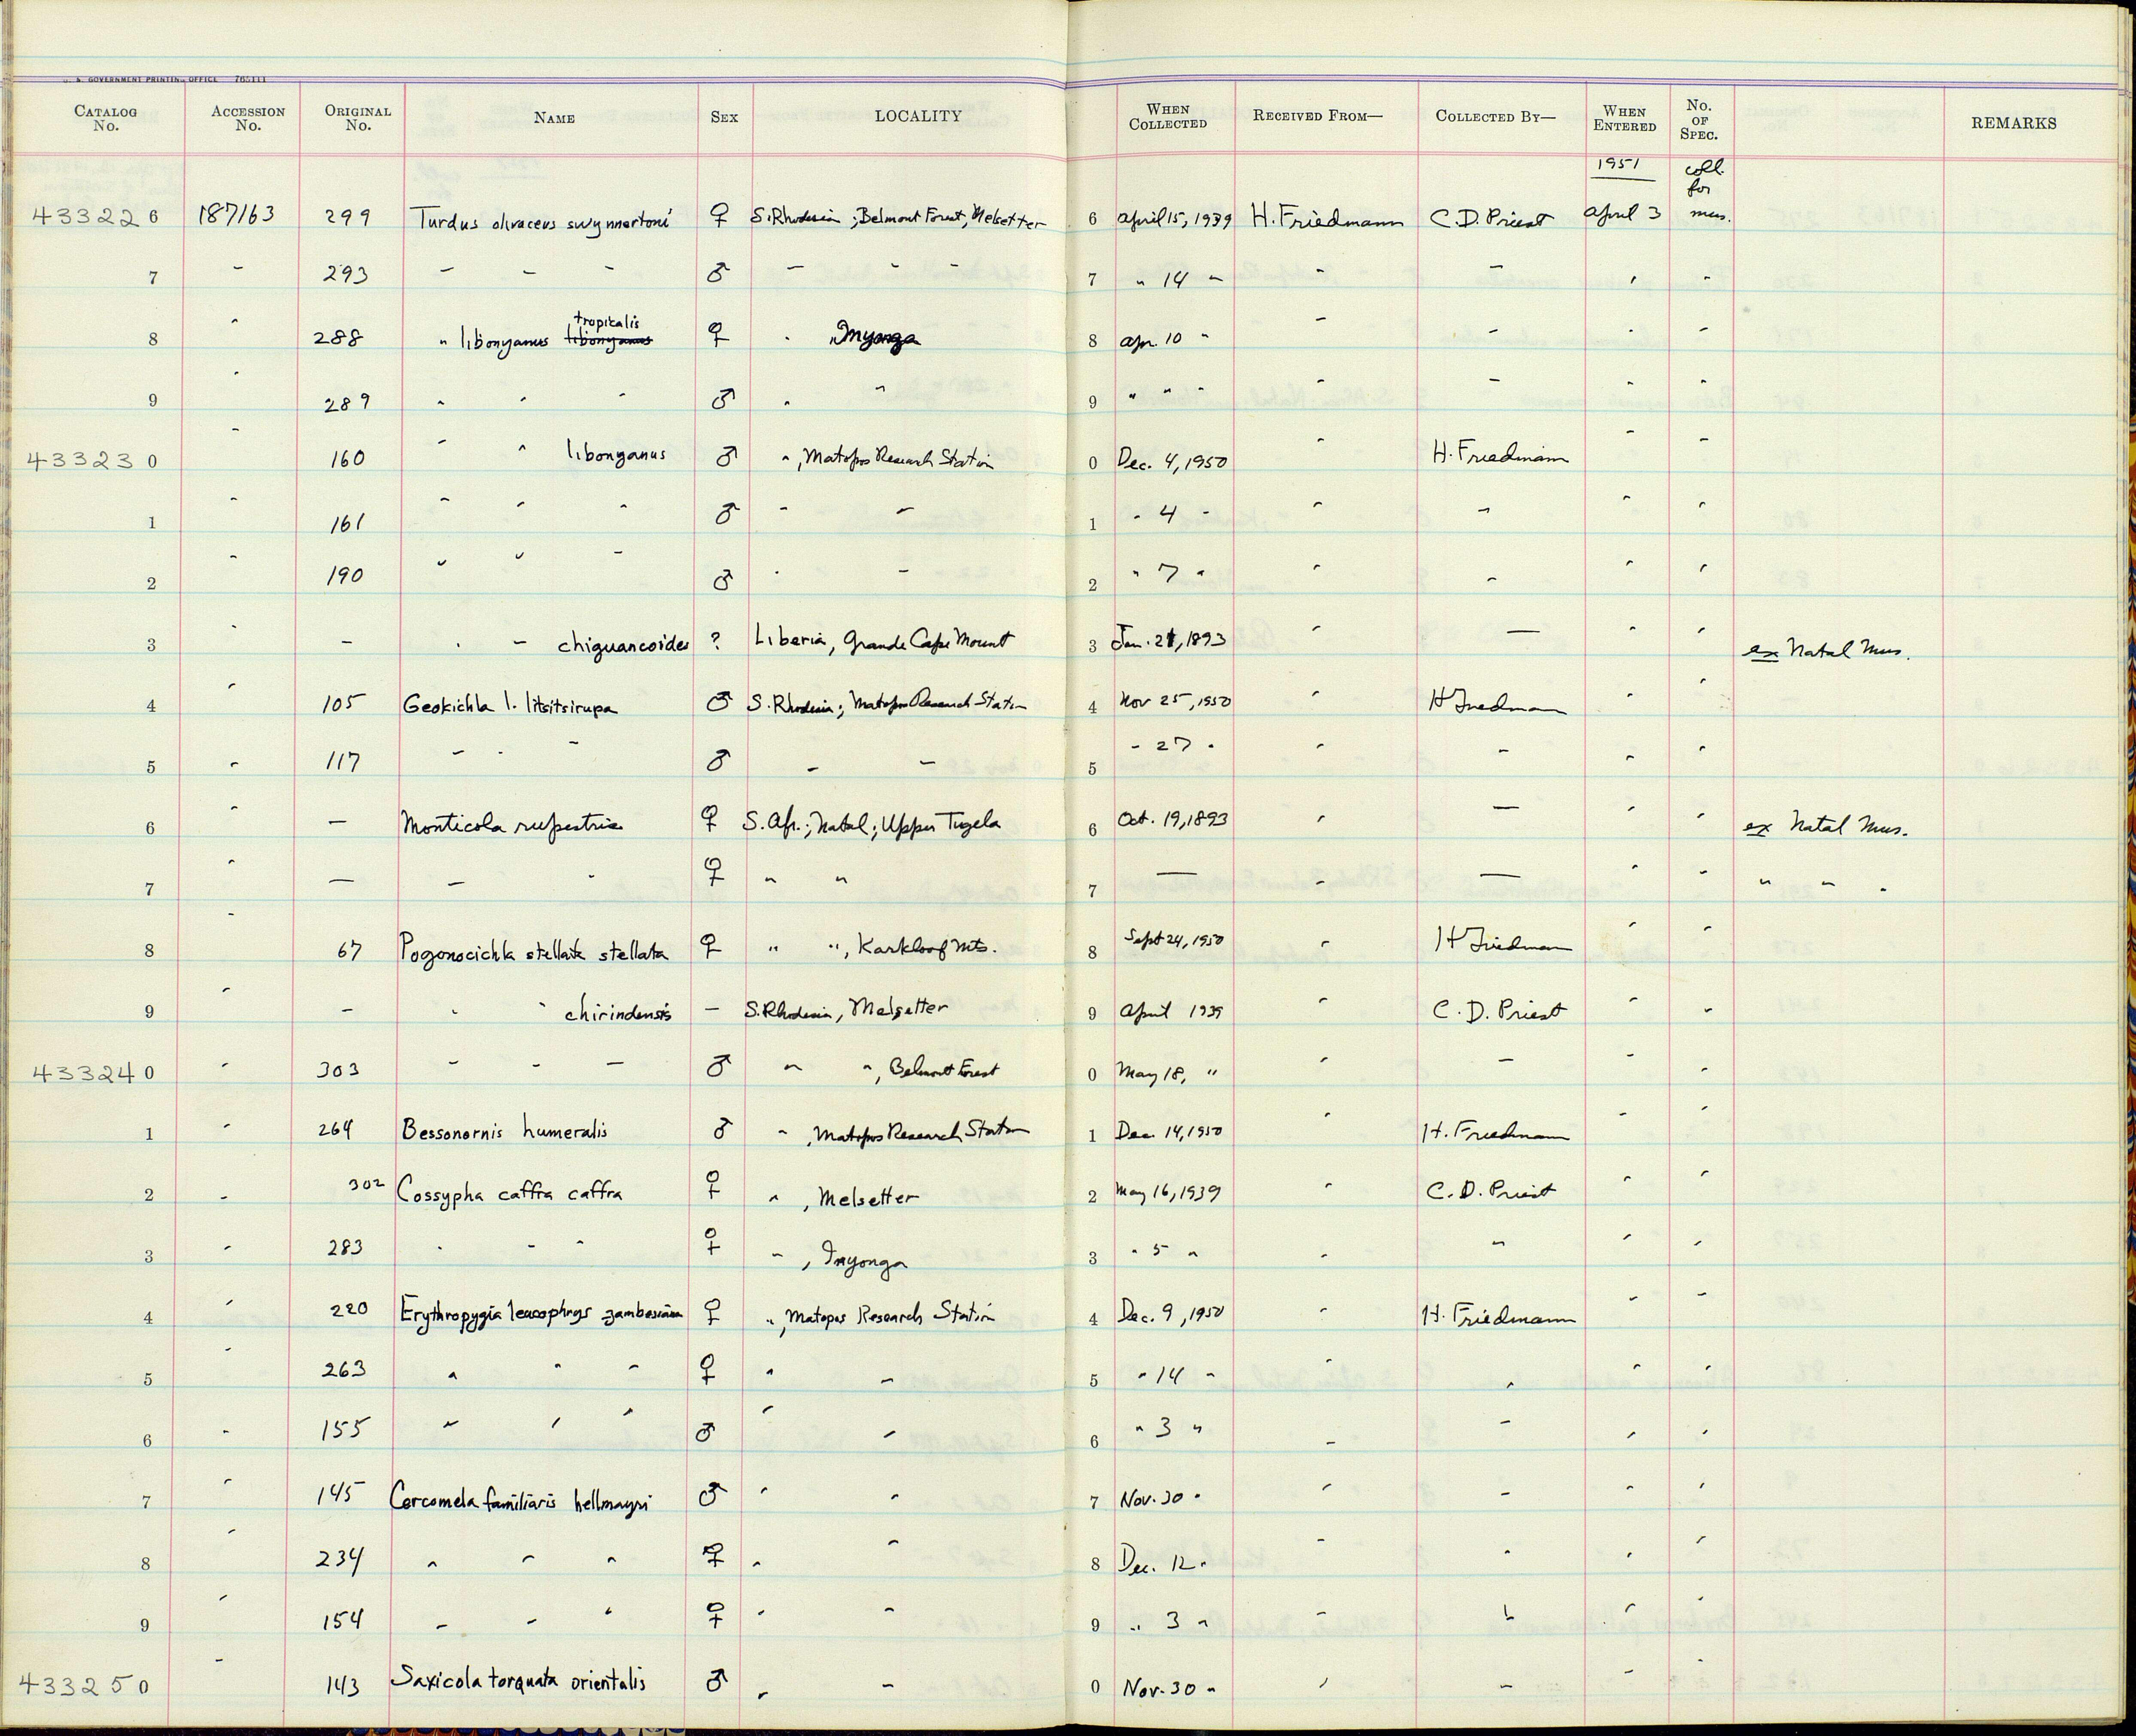 U. S. GOVERNMENT PRINTING OFFICE 765111
CATALOG No. ACCESSION No. ORIGINAL No. NAME SEX LOCALITY WHEN COLLECTED RECEIVED FROM— COLLECTED BY— WHEN ENTERED No. OF SPEC. REMARKS
1951 coll. for
433226 187163 299 Turdus olivaceus swynnertoni ♀ S. Rhodesia; Belmont Forest, Melsetter 6 April 15, 1939 H. Friedmann C. D. Priest April 3 mus.
7 " 293 " " " ♂ " " " 7 " 14 " " " " "
tropicalis
8 " 288 " libonyanus libonyanus ♀ " , Inyanga 8 Apr. 10 " " " " "
9 " 289 " " " ♂ " " 9 " " " " " " "
433230 " 160 " " libonyanus ♂ ", Matopos Research Station 0 Dec. 4, 1950 " H. Friedmann " "
1 " 161 " " " ♂ " " 1 " 4 " " " " "
2 " 190 " " " ♂ " " 2 " 7 " " " " "
3 " — " " chiguancoides ? Liberia, Grande Cape Mount 3 Jan. 21, 1893 " — " " ex Natal Mus.
4 " 105 Geokichla l. litsitsirupa ♂ S. Rhodesia; Matopos Research Station 4 Nov 25, 1950 " H Friedmann " "
5 " 117 " " " ♂ " " 5 " 27 " " " " "
6 " — Monticola rupestris ♀ S. Afr.; Natal; Upper Tugela 6 Oct. 19, 1893 " — " " ex Natal Mus.
7 " — " " ♀ " " 7 — " — " " " " "
8 " 67 Pogonocichla stellata stellata ♀ " ", Karkloof Mts. 8 Sept 24, 1950 " H Friedmann " "
9 " — " " chirindensis — S. Rhodesia, Melsetter 9 April 1939 " C. D. Priest " "
433240 " 303 " " " ♂ " ", Belmont Forest 0 May 18, " " " " "
1 " 264 Bessonornis humeralis ♂ " , Matopos Research Station 1 Dec. 14, 1950 " H. Friedmann " "
2 " 302 Cossypha caffra caffra ♀ " , Melsetter 2 May 16, 1939 " C. D. Priest " "
3 " 283 " " " ♀ " , Inyanga 3 " 5 " " " " "
4 " 220 Erythropygia leucophrys zambesiana ♀ ", Matopos Research Station 4 Dec. 9, 1950 " H. Friedmann " "
5 " 263 " " " ♀ " " 5 " 14 " " " " "
6 " 155 " " " ♂ " " 6 " 3 " " " " "
7 " 145 Cercomela familiaris hellmayri ♂ " " 7 Nov. 30 " " " " "
8 " 234 " " " ♀ " " 8 Dec. 12 " " " " "
9 " 154 " " " ♀ " " 9 " 3 " " " " "
433250 " 143 Saxicola torquata orientalis ♂ " " 0 Nov. 30 " " " " "